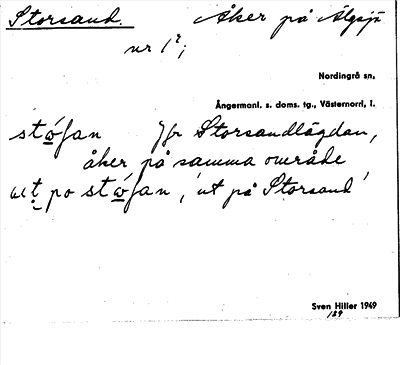 Storsand. Åker på Älgsjö
nr 1²;
Nordingrå sn,
Ångermanl. s. doms. tg., Västernorrl. l.
Jfr Storsandlägdan,
åker på samma område
'ut på Storsand'
Sven Hiller 1949
189